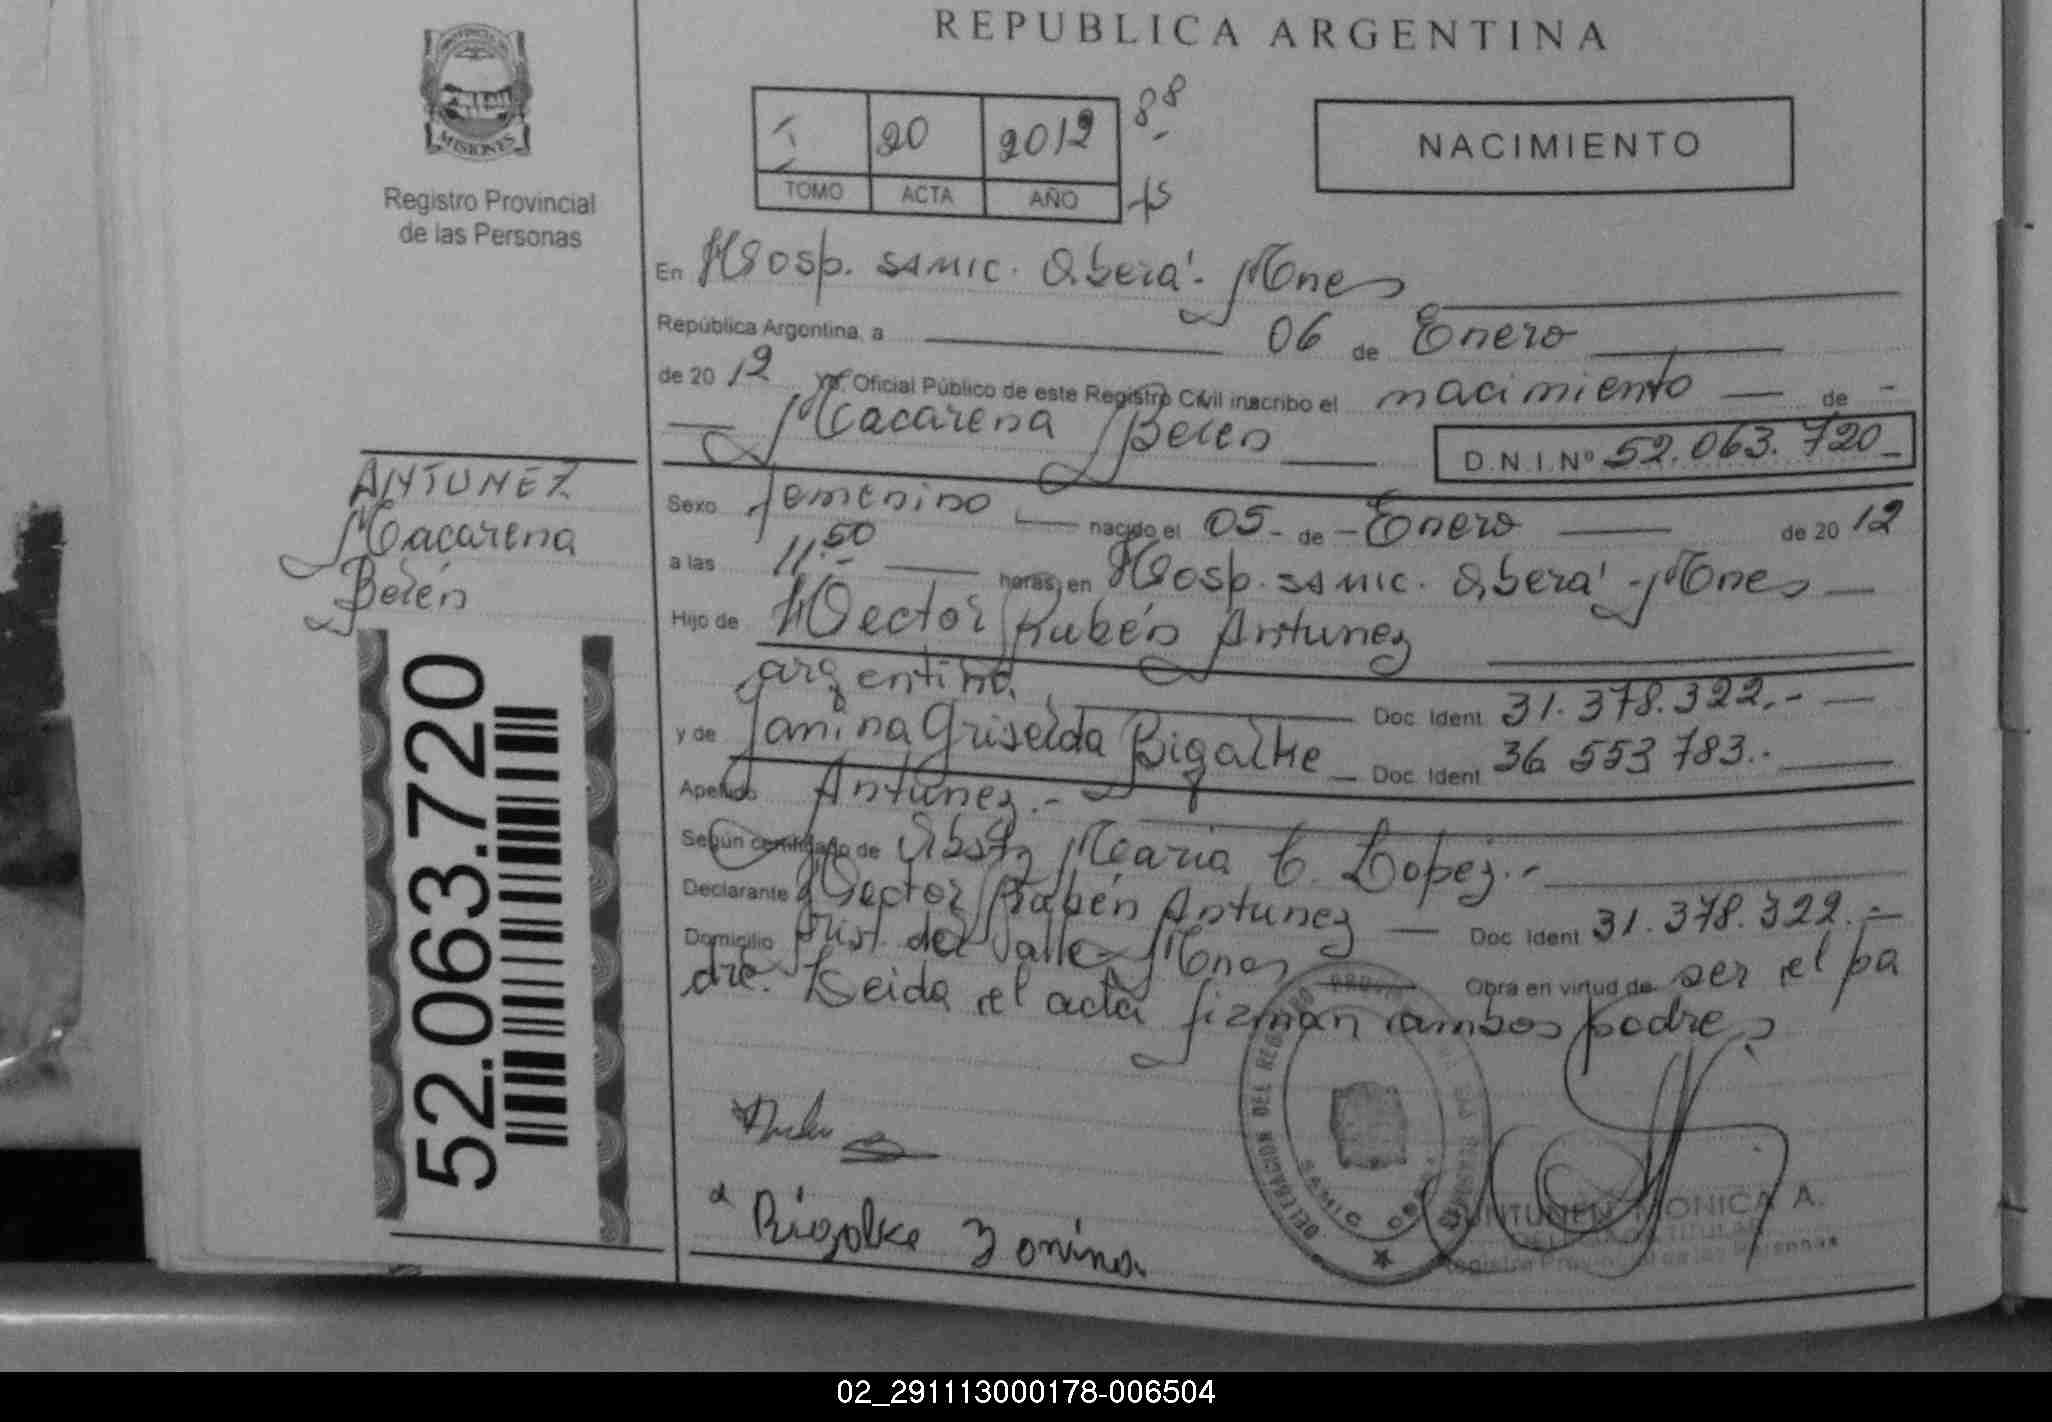 REPUBLICA ARGENTINA
MISIONES
Registro Provincial
de las Personas
I 20 2012
TOMO ACTA AÑO
88
NACIMIENTO
En Hosp. SAMIC. Oberá. Mnes
República Argentina, a 06 de Enero
de 20 12 Yo. Oficial Público de este Registro Civil inscribo el nacimiento de
Macarena Belén
D.N.I.Nº 52.063.720
ANTUNEZ
Macarena
Belén
52.063.720
Sexo femenino nacido el 05 - de - Enero de 20 12
a las 11.50 horas, en Hosp. SAMIC. Oberá - Mnes
Hijo de Hector Rubén Antunez
argentino. Doc. Ident 31.378.322.-
y de Janina Griselda Bigalke Doc. Ident 36 553 783.-
Apellido Antunez.-
Según certificado de Obst. Maria C. Lopez.-
Declarante Hector Rubén Antunez Doc. Ident 31.378.322.-
Domicilio Arist. del Valle Mnes Obra en virtud de ser el pa
dre. Leida el acta firman ambos padres
Bigalke Janina.
DELEGACION DEL REGISTRO
SAMIC
MONICA A.
TITULAR
Registro Provincial de las Personas
02_291113000178-006504